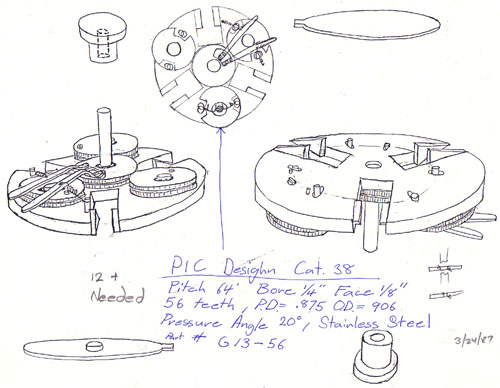 PIC Desighn Cat. 38
Pitch 64 Bore 1/4" Face 1/8"
56 teeth, P.D.= .875 O.D.= 906
Pressure Angle 20°, Stainless Steel
Part # G13-56
12 +
Needed
3/24/87